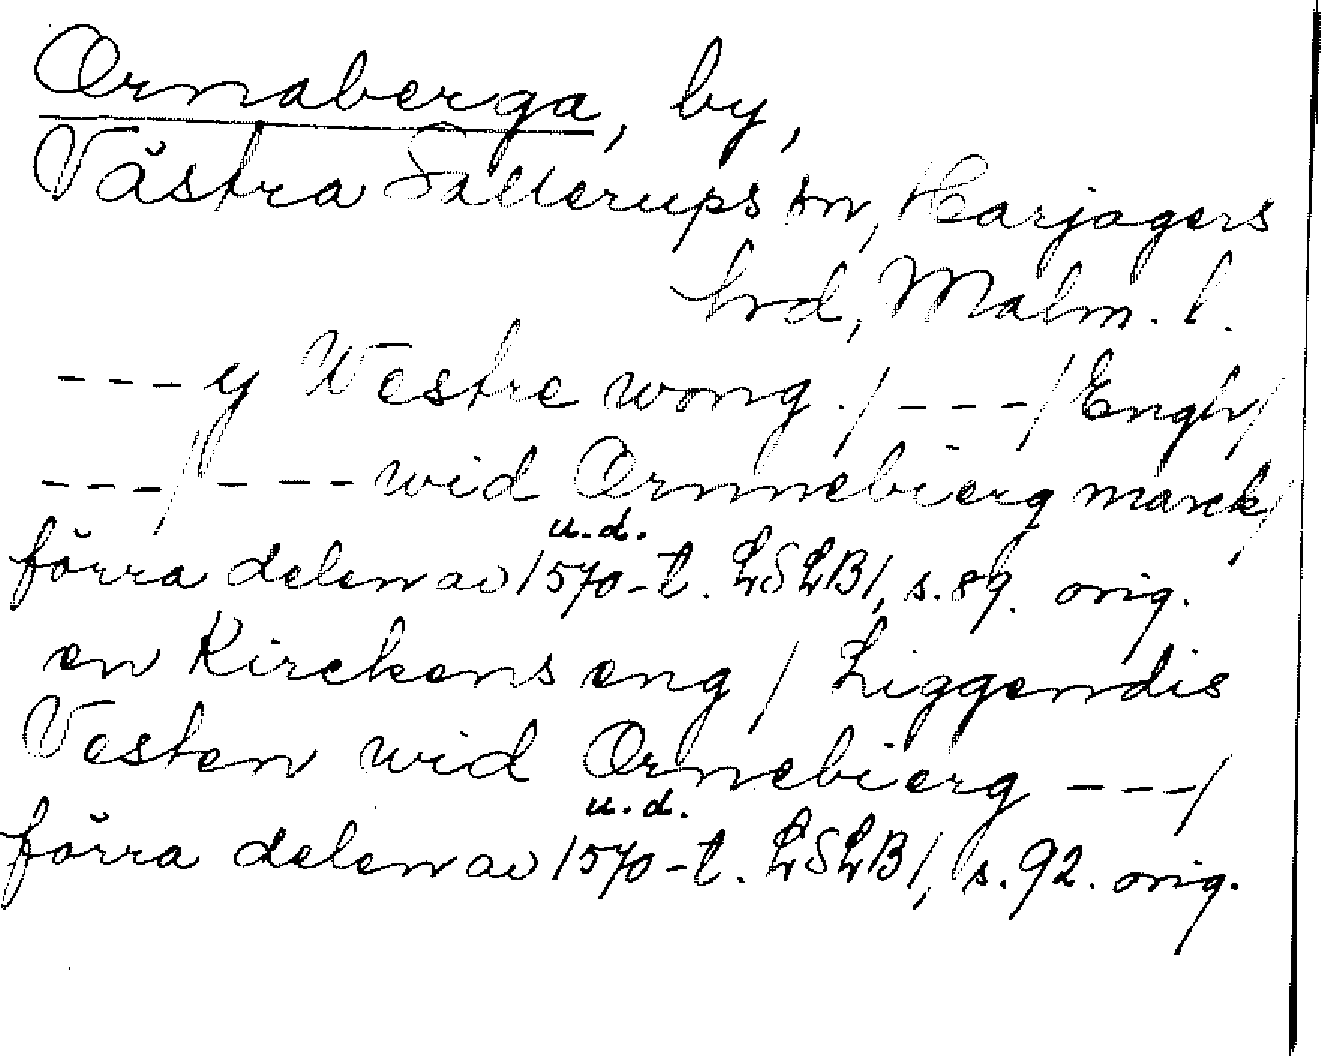 Ornaberga, by,
Västra Sallerups sn, Harjagers
hrd, Malm. l.
---y Westre wong./---/Engh/
---/---wid Ornnebierg marck/
u.d.
förra delen av 1570-t. LSLB1, s.89. orig.
en Kirckens eng / Liggendis
Vesten wid Ornebierg ---/
u.d.
förra delen av 1570-t. LSLB1, s.92. orig.